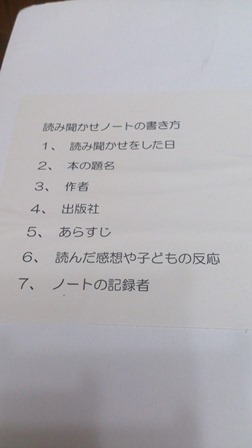 読み聞かせノートの書き方
1、 読み聞かせをした日
2、 本の題名
3、 作者
4、 出版社
5、 あらすじ
6、 読んだ感想や子どもの反応
7、 ノートの記録者